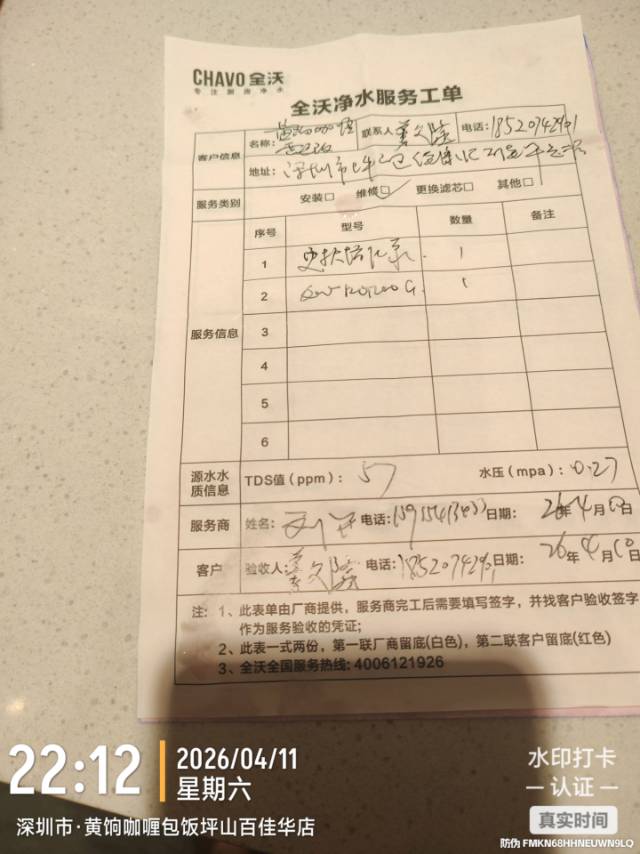 CHAVO 全沃
专注厨房净水
全沃净水服务工单
客户信息
名称：
联系人
电话：18520742901
地址：深圳市
服务类别
安装□ 维修☑ 更换滤芯□ 其他□
服务信息
序号 型号 数量 备注
1 1
2 1
3
4
5
6
源水水质信息
TDS值（ppm）：57 水压（mpa）：0.27
服务商
姓名： 电话： 日期：26年4月10日
客户
验收人： 电话：18520742901 日期：26年4月10日
注：1、此表单由厂商提供，服务商完工后需要填写签字，并找客户验收签字
作为服务验收的凭证；
2、此表一式两份，第一联厂商留底(白色)，第二联客户留底(红色)
3、全沃全国服务热线: 4006121926
22:12
2026/04/11
星期六
深圳市·黄饷咖喱包饭坪山百佳华店
水印打卡
认证
真实时间
防伪 FMKN68HHNEUWN9LQ